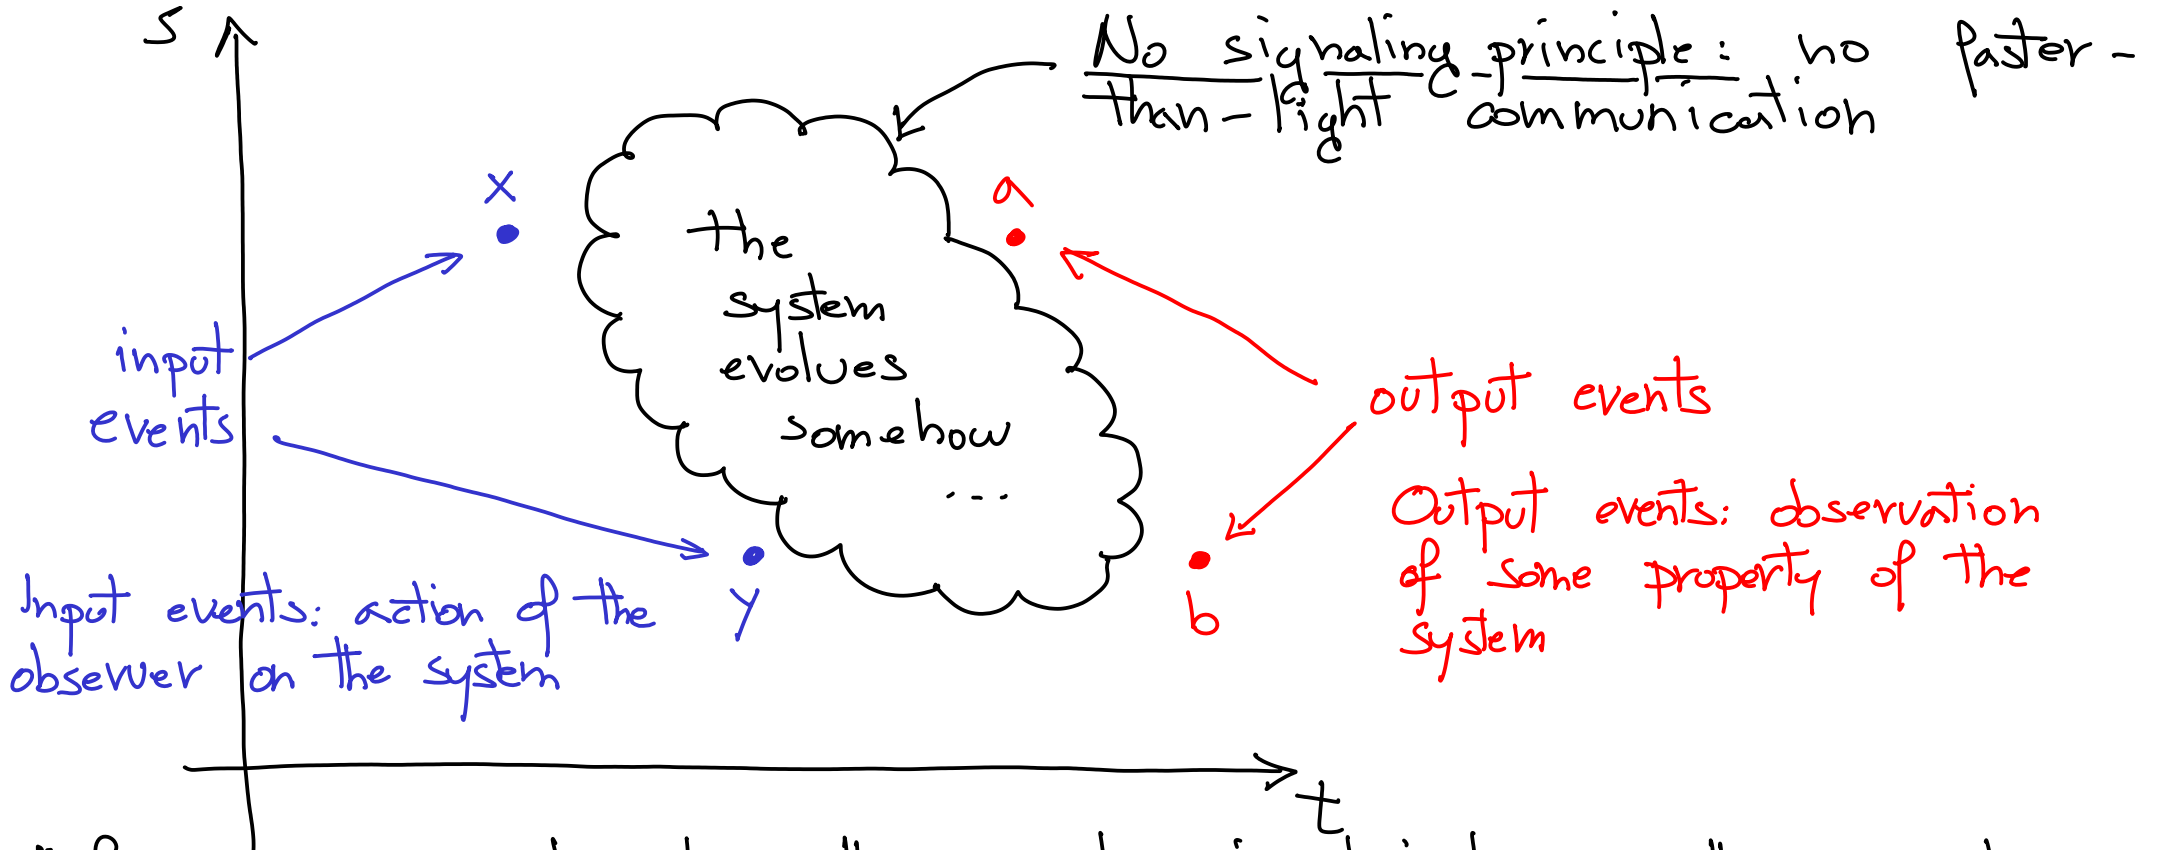 S
No signaling principle: no faster-
than-light communication
x
a
the
system
evolves
somehow
...
input
events
output events
Output events: observation
of some property of the
system
y
b
Input events: action of the
observer on the system
t